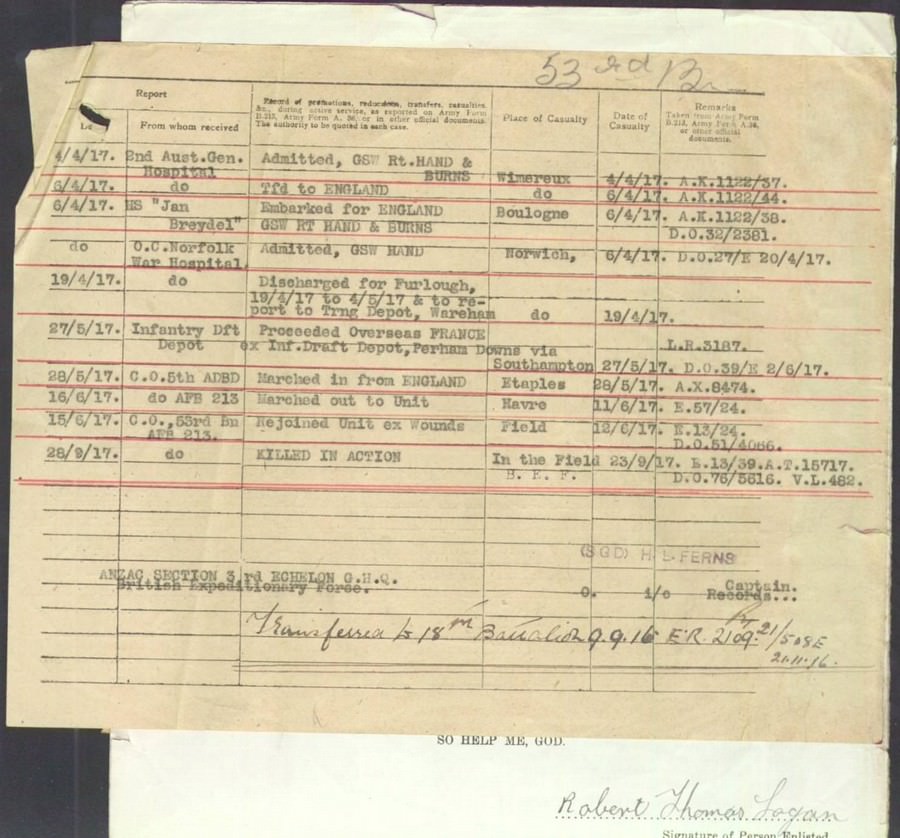 53rd Bn
Report
Record of promotions, reductions, transfers, casualties,
&c., during active service, as reported on Army Form
B.213, Army Form A. 36, or in other official documents.
The authority to be quoted in each case.
Place of Casualty
Date of
Casualty
Remarks
Taken from Army Form
B.213, Army Form A.36,
or other official
documents.
From whom received
4/4/17. 2nd Aust.Gen. Admitted, GSW Rt.HAND &
Hospital BURNS Wimereux 4/4/17. A.K.1122/37.
6/4/17. do Tfd to ENGLAND do 6/4/17. A.K.1122/44.
6/4/17. HS "Jan Embarked for ENGLAND Boulogne 6/4/17. A.K.1122/38.
Breydel" GSW RT HAND & BURNS D.O.32/2381.
do O.C.Norfolk Admitted, GSW HAND Norwich, 6/4/17. D.O.27/E 20/4/17.
War Hospital.
19/4/17. do Discharged for Furlough,
19/4/17 to 4/5/17 & to re-
port to Trng Depot, Wareham do 19/4/17.
27/5/17. Infantry Dft Proceeded Overseas FRANCE
Depot ex Inf.Draft Depot,Perham Downs via L.R.3187.
Southampton 27/5/17. D.O.39/E 2/6/17.
28/5/17. C.O.5th ADBD Marched in from ENGLAND Etaples 28/5/17. A.X.8474.
16/6/17. do AFB 213 Marched out to Unit Havre 11/6/17. E.57/24.
15/6/17. C.O.,53rd Bn Rejoined Unit ex Wounds Field 12/6/17. E.13/24.
AFB 213. D.O.51/4066.
28/9/17. do KILLED IN ACTION In the Field 23/9/17. E.13/39.A.T.15717.
B. E. F. D.O.76/5616. V.L.482.
(SGD) H. L. FERNS
ANZAC SECTION 3 rd ECHELON G.H.Q. Captain.
British Expeditionary Force. O. i/c Records...
Transferred to 18th Battalion 9.9.16 E.R. 2109 21/508E
21.11.16.
SO HELP ME, GOD.
Robert Thomas Logan
Signature of Person Enlisted